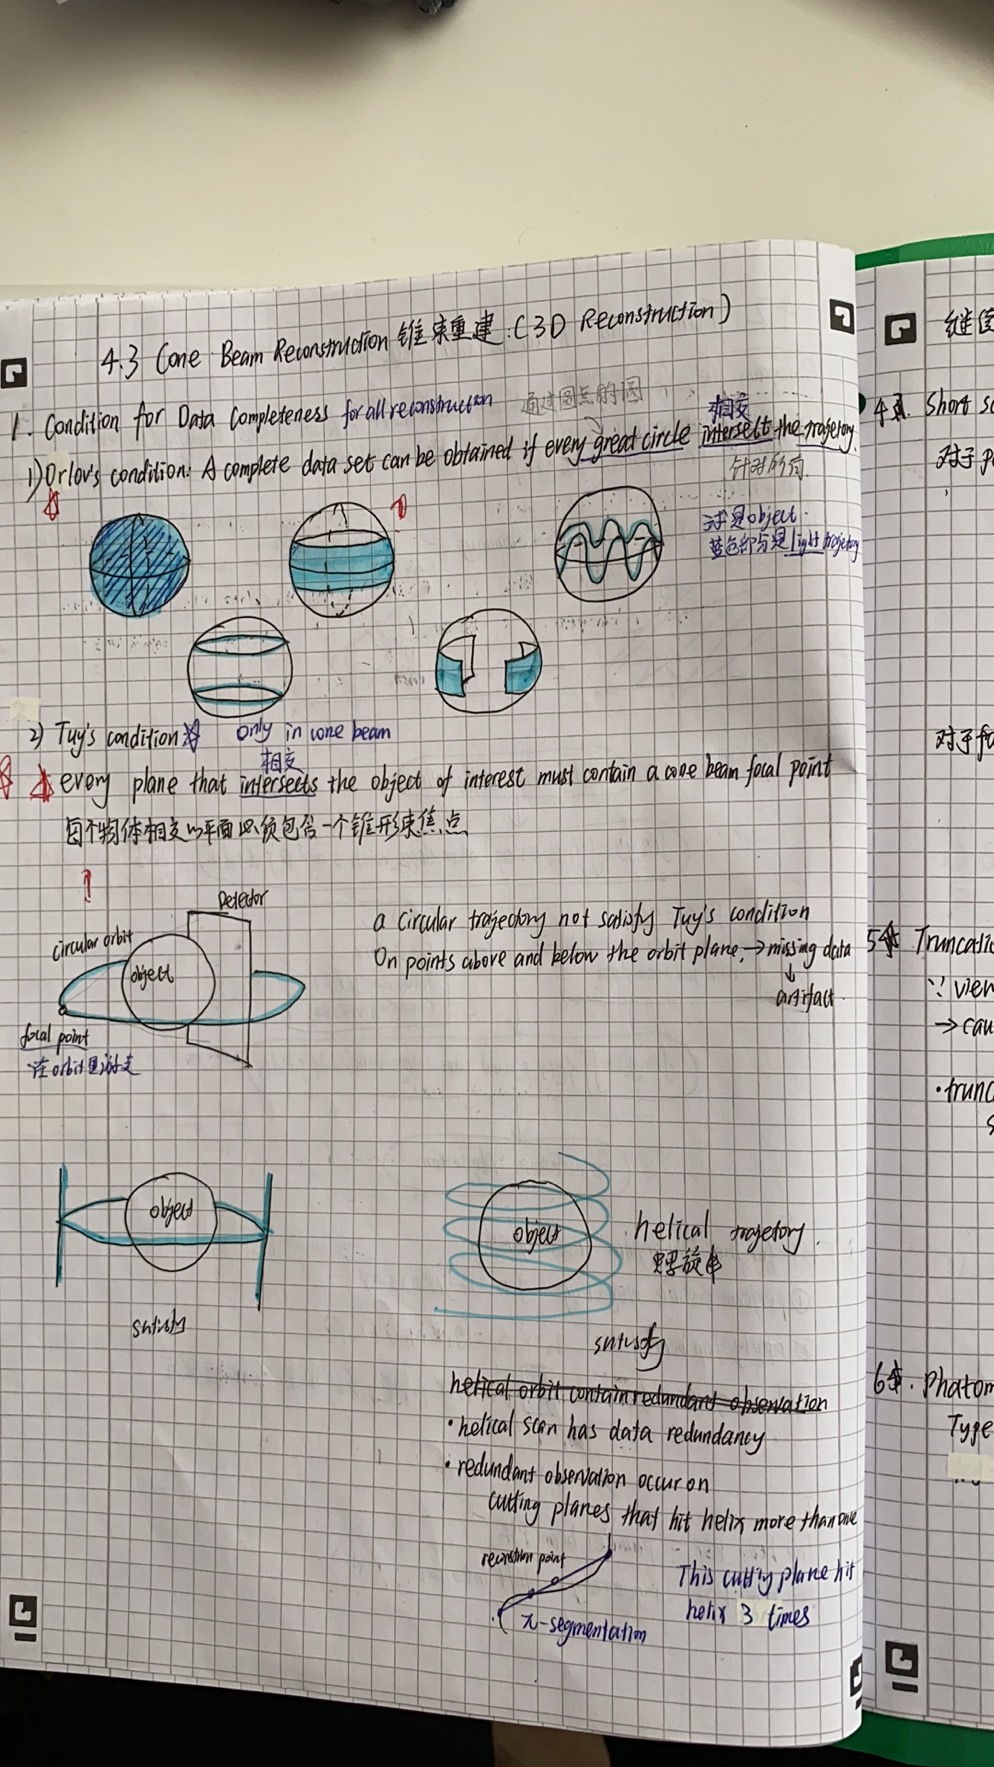 4.3 Cone Beam Reconstruction 锥束重建.(3D Reconstruction)
1. Condition for Data Completeness for all reconstruction
通过圆点的圆
相交
1) Orlov's condition: A complete data set can be obtained if every great circle intersect the trajetory.
针对所有
球是object.
蓝色部分是light trajetory
2) Tuy's condition only in cone beam
相交
every plane that intersects the object of interest must contain a cone beam focal point
每个物体相交的平面必须包含一个锥形束焦点
Detector
circular orbit
object
focal point
在orbit里游走
a circular trajectory not satisfy Tuy's condition
On points above and below the orbit plane, → missing data
↓
artifact.
object
satisfy
object
helical trajetory.
螺旋
satisfy
helical orbit contain redundant observation
• helical scan has data redundancy
• redundant observation occur on
cutting planes that hit helix more than one
point
π-segmentation
This cutting plane hit
helix 3 times
继
4. Short sc
对于
对于f
5 Truncatio
∵ view
→ cau
• trunc
6. Phatom
Type